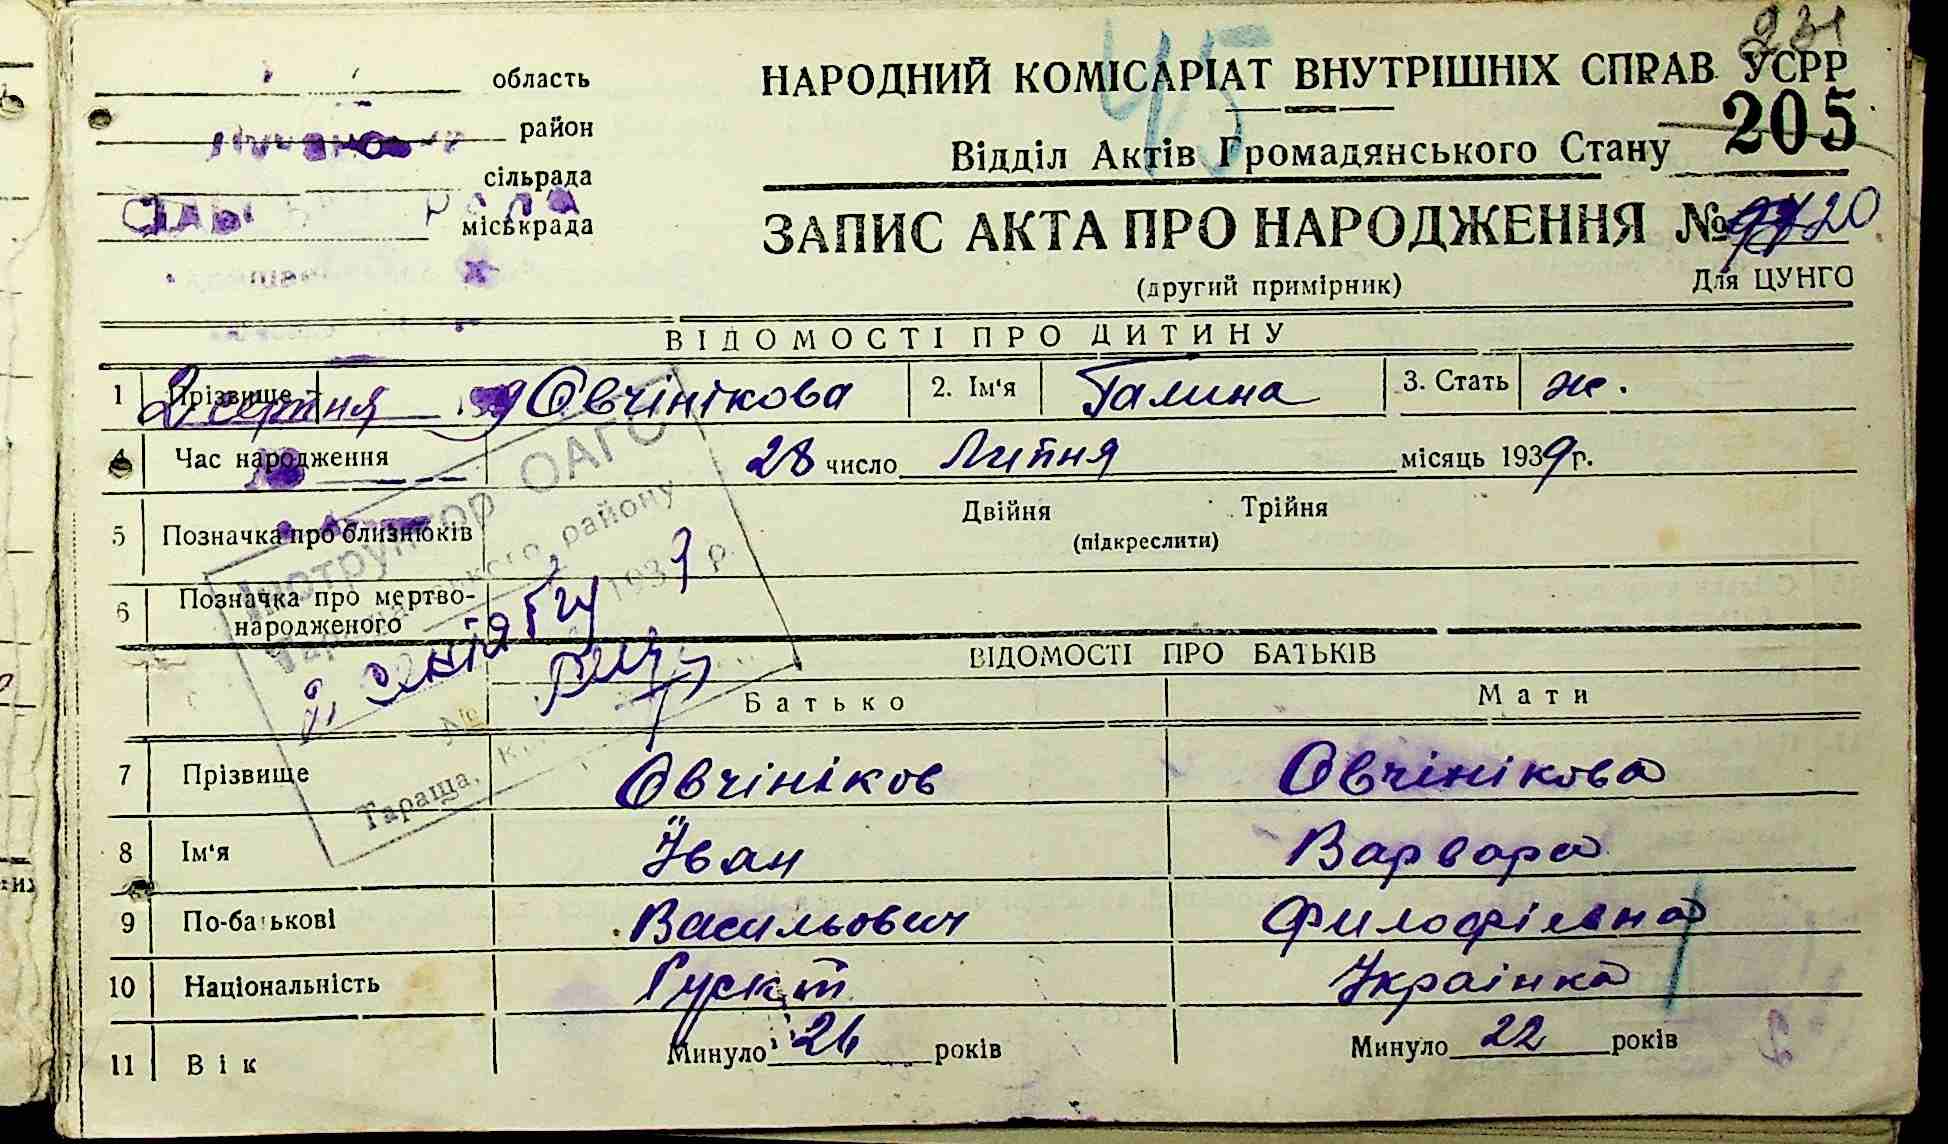 231
область
НАРОДНИЙ КОМІСАРІАТ ВНУТРІШНІХ СПРАВ УСРР
45
район
205
Відділ Актів Громадянського Стану
сільрада
міськрада
ЗАПИС АКТА ПРО НАРОДЖЕННЯ № 20
(другий примірник) Для ЦУНГО
ВІДОМОСТІ ПРО ДИТИНУ
1 Прізвище Овчінікова 2. Ім'я Галина 3. Стать ж.
2 серпня 9
4 Час народження 28 число Липня місяць 1939 г.
Інструктор ОАГС
району
5 Позначка про близнюків Двійня Трійня
(підкреслити)
1939 р.
6 Позначка про мертво-
народженого
ВІДОМОСТІ ПРО БАТЬКІВ
Батько Мати
№
Тараща, К.
7 Прізвище Овчініков Овчінікова
8 Ім'я Іван Варвара
9 По-батькові Васильович Филофіевна
10 Національність Рускій Украінка
11 Вік Минуло 24 років Минуло 22 років